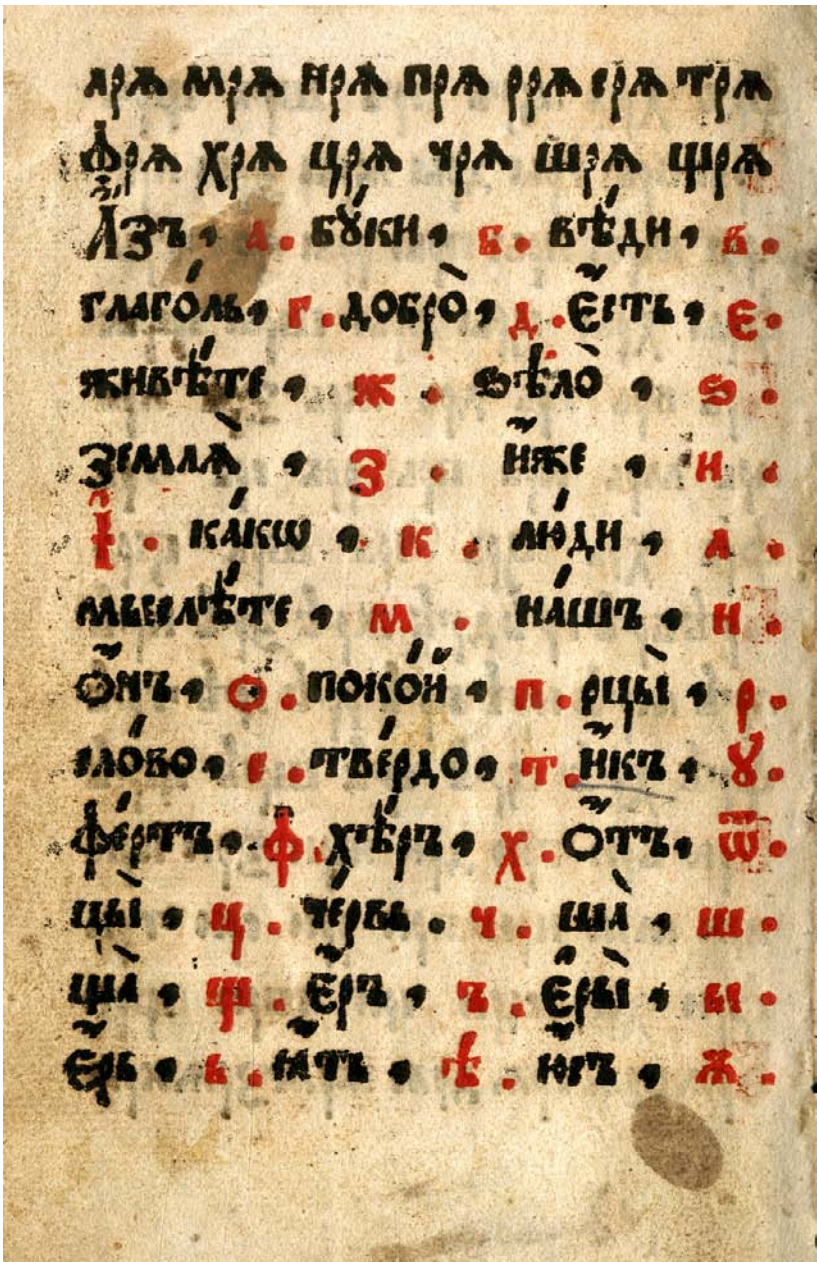 лрѧ мрѧ нрѧ прѧ ррѧ срѧ трѧ
фрѧ хрѧ црѧ чрѧ шрѧ щрѧ
А҆́зъ, а. бꙋ́ки, б. вѣ́ди, в.
глаго́ль, г. добро̀, д. є҆́сть, є.
живѣ́те, ж. ѕѣло̀, ѕ.
землѧ̀, з. и҆́же, и.
і҆. ка́кѡ, к. лю́ди, л.
мыслѣ́те, м. на́шъ, н.
ѻ҆́нъ, ѻ. поко́й, п. рцы̀, р.
сло́во, с. тве́рдо, т. и҆́къ, ꙋ.
фе́ртъ, ф. хѣ́ръ, х. ѻ҆́тъ, ѿ.
цы̀, ц. че́рвь. ч. ша̀, ш.
ща̀, щ. є҆́ръ, ъ. є҆ры̀, ы.
є҆́рь, ь. ꙗ҆́ть, ѣ. ю҆́съ, ѫ.